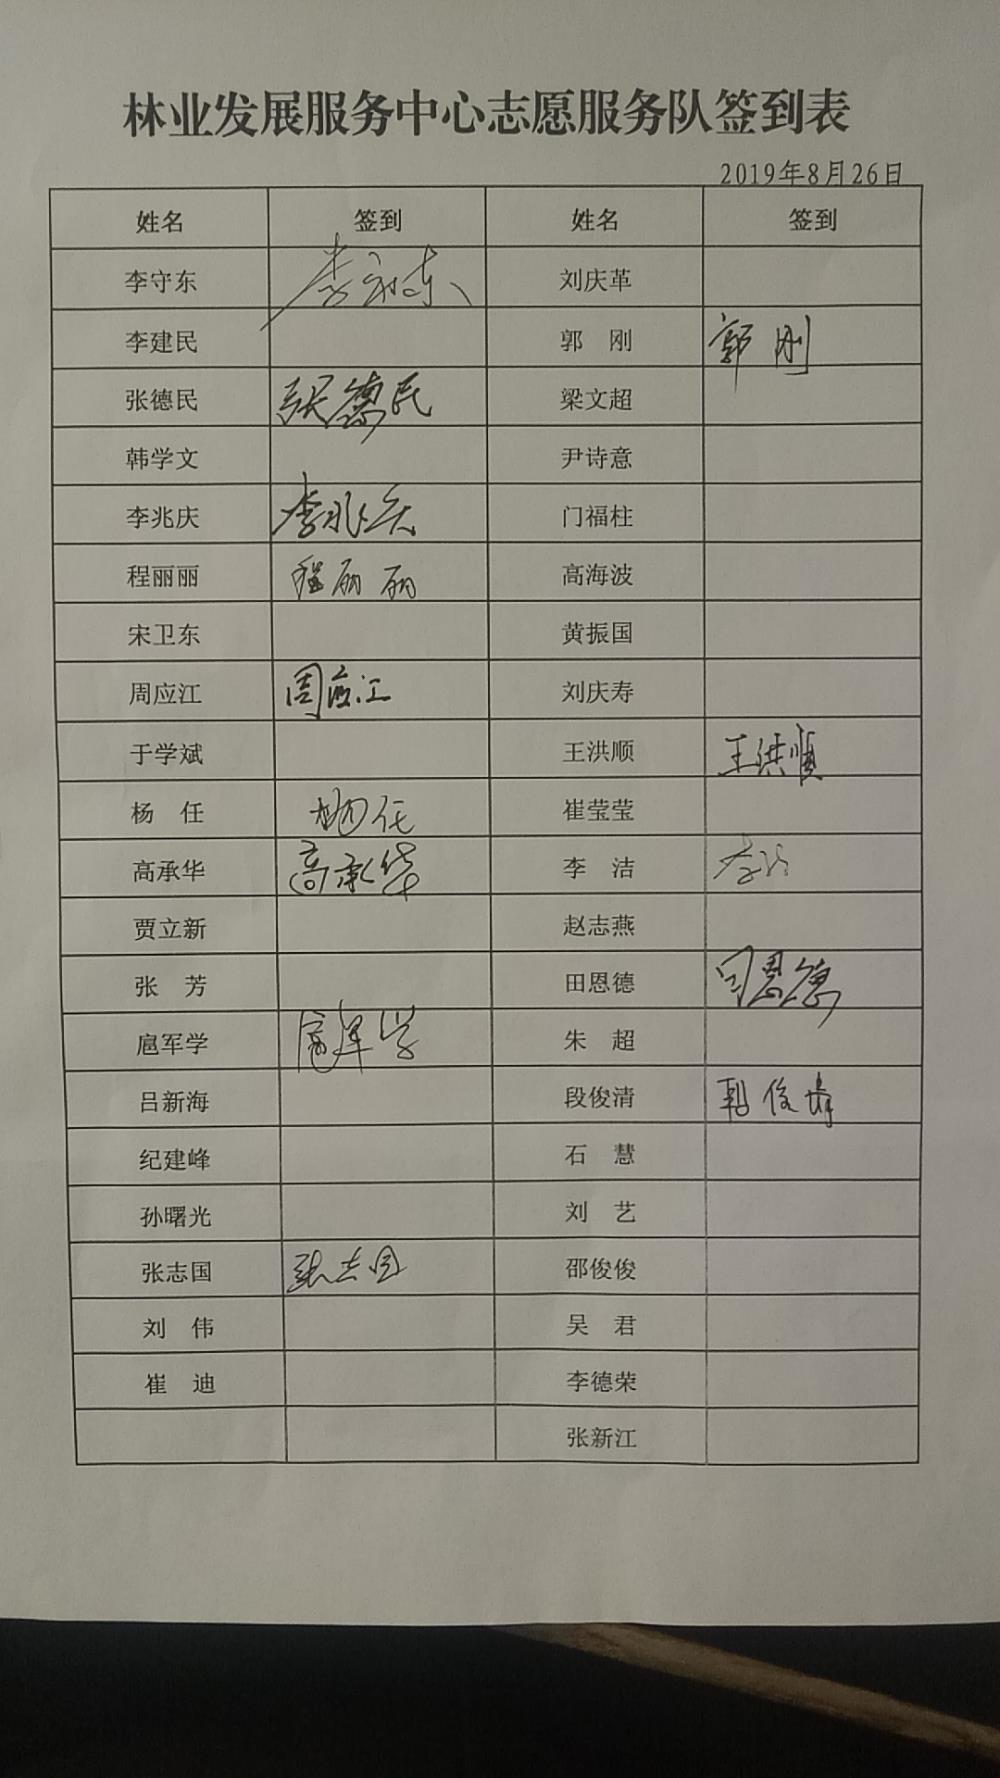 林业发展服务中心志愿服务队签到表
2019年8月26日
姓名 签到 姓名 签到
李守东 李守东 刘庆革
李建民 郭 刚 郭刚
张德民 张德民 梁文超
韩学文 尹诗意
李兆庆 李兆庆 门福柱
程丽丽 程丽丽 高海波
宋卫东 黄振国
周应江 周应江 刘庆寿
于学斌 王洪顺 王洪顺
杨 任 杨任 崔莹莹
高承华 高承华 李 洁 李洁
贾立新 赵志燕
张 芳 田恩德 田恩德
扈军学 扈军学 朱 超
吕新海 段俊清 段俊清
纪建峰 石 慧
孙曙光 刘 艺
张志国 张志国 邵俊俊
刘 伟 吴 君
崔 迪 李德荣
张新江